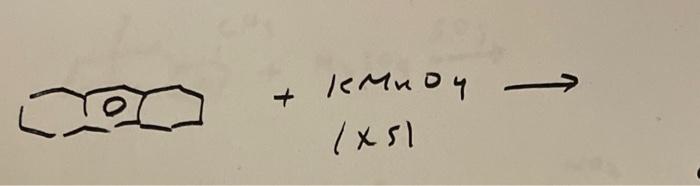 + KMnO4 →
(XS)